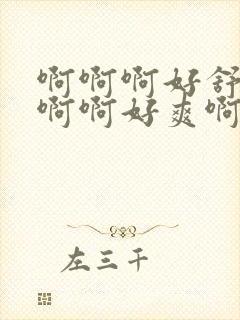 啊啊啊好舒
啊啊好爽啊
左三千